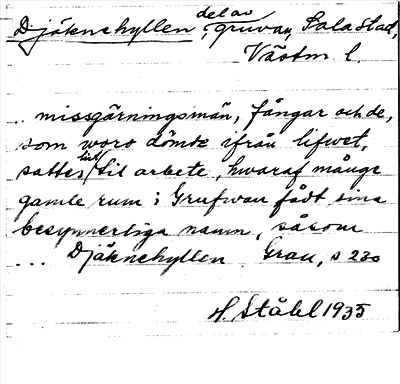 Djäknehyllen, del av gruvan, Sala stad,
Västm l.
.. missgärningsmän, fångar och de,
som woro dömde ifrån lifwet,
sattes til arbete, hwaraf många
gamle rum i Grufwan fådt sina
besynnerliga namn, såsom
... Djäknehyllen Grau, s 230
H. Ståhl 1935